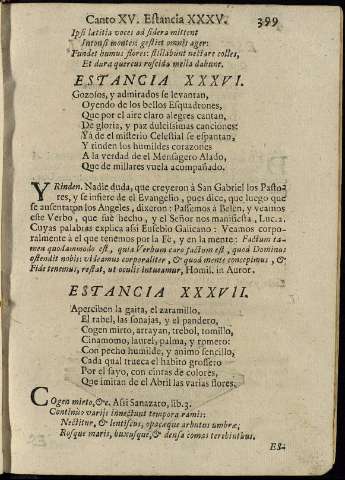 Canto XV. Estancia XXXV. 399
Ipsi lætitia voces ad sidera mittent
Intonsi montes: gestiet omnis ager:
Fundet humus flores: stillabunt nectare colles,
Et dura quercus roscida mella dabunt.
ESTANCIA XXXVI.
Gozosos, y admirados se levantan,
Oyendo de los bellos Esquadrones,
Que por el aire claro alegres cantan,
De gloria, y paz dulcissimas canciones:
Ya de el misterio Celestial se espantan,
Y rinden los humildes corazones
A la verdad de el Mensagero Alado,
Que de millares vuela acompañado.
Y Rinden. Nadie duda, que creyeron à San Gabriel los Pasto-
res, y se infiere de el Evangelio, pues dice, que luego que
se ausentaron los Angeles, dixeron: Passemos à Belèn, y veamos
este Verbo, que fuè hecho, y el Señor nos manifiesta, Luc. 2.
Cuyas palabras explica assi Eusebio Galicano: Veamos corpo-
ralmente à el que tenemos por la Fè, y en la mente: Factum ta-
men quodammodo est, quia Verbum caro factum est, quod Dominus
ostendit nobis: videamus corporaliter, & quod mente concepimus, &
Fide tenemus, restat, ut oculis intueamur, Homil. in Auror.
ESTANCIA XXXVII.
Aperciben la gaita, el zaramillo,
El rabel, las sonajas, y el pandero,
Cogen mirto, arrayan, trebol, tomillo,
Cinamomo, laurel, palma, y romero:
Con pecho humilde, y animo sencillo,
Cada qual trueca el habito grossero
Por el sayo, con cintas de colores,
Que imitan de el Abril las varias flores.
Cogen mirto, &c. Assi Sanazaro, lib. 3.
Continuò varijs innectunt tempora ramis:
Nectitur, & lentiscus, opacæque arbutus umbræ;
Rosque maris, buxusque, & densa comas terebinthus.